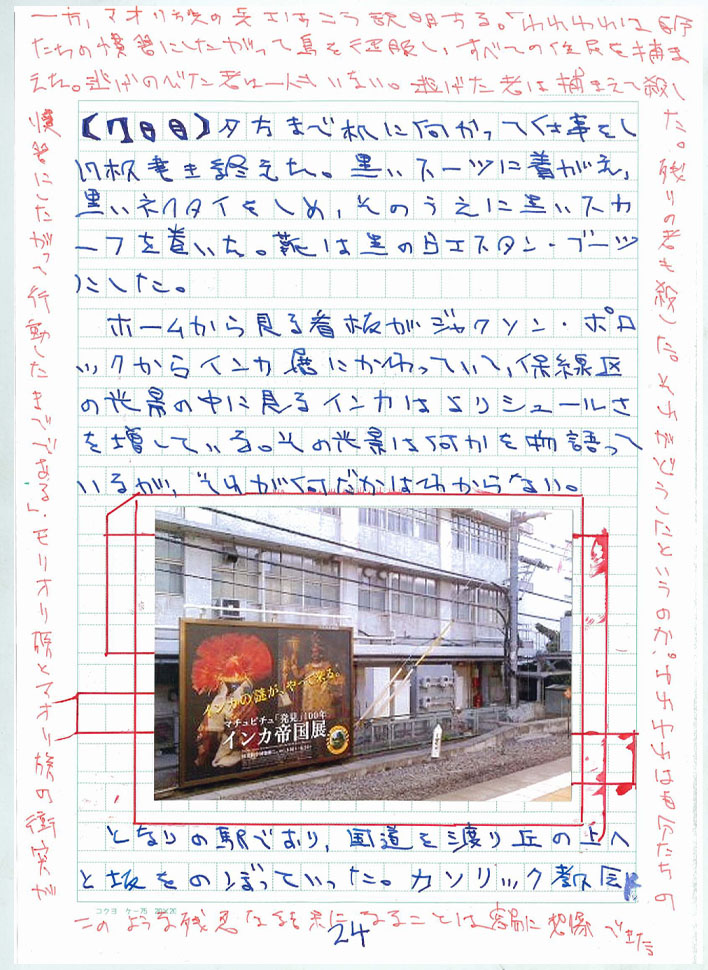 一方、マオリ族の兵士はこう説明する。「われわれは自分
たちの慣習にしたがって島を征服し、すべての住民を捕ま
えた。逃げのびた者は一人もいない。逃げた者は捕まえて殺し
た。残りの者も殺した。それがどうしたというのか?われわれは自分たちの
慣習にしたがって行動したまでである」。モリオリ族とマオリ族の衝突が
このような残忍な結果になることは容易に想像できた
【7日目】夕方まで机に向かって仕事をし
板書を終えた。黒いスーツに着がえ、
黒いネクタイをしめ、そのうえに黒いスカ
ーフを巻いた。靴は黒の白エスタン・ブーツ
にした。
ホームから見る看板がジャクソン・ポロ
ックからインカ展にかわっていて、保線区
の光景の中に見るインカはよりシュールさ
を増している。その光景は何かを物語って
いるが、それが何だかはわからない。
インカの謎が、やって来る。
マチュピチュ「発見」100年
インカ帝国展
となりの駅でおり、国道を渡り丘の上へ
と坂をのぼっていった。カソリック教区
コクヨ ケー75 20×20
24